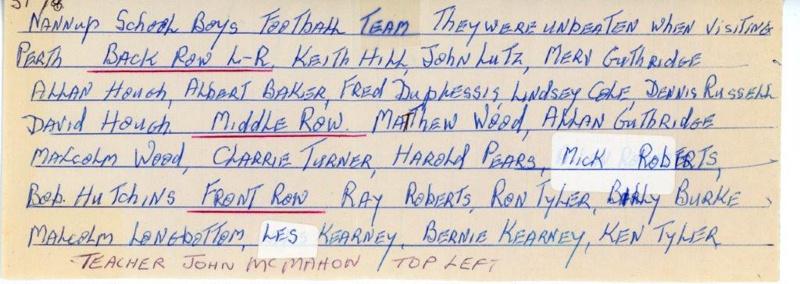 NANNUP SCHOOL BOYS FOOTBALL TEAM THEY WERE UNBEATEN WHEN VISITING
PERTH BACK ROW L-R, KEITH HILL, JOHN LUTZ, MERV GUTHRIDGE
ALLAN HOUGH, ALBERT BAKER, FRED DUPLESSIS, LINDSEY COLE, DENNIS RUSSELL
DAVID HOUGH MIDDLE ROW MATTHEW WOOD, ALLAN GUTHRIDGE
MALCOLM WOOD, CLARRIE TURNER, HAROLD PEARS, MICK ROBERTS,
BOB. HUTCHINS FRONT ROW RAY ROBERTS, RON TYLER, BILLY BURKE
MALCOLM LONGBOTTOM, LES KEARNEY, BERNIE KEARNEY, KEN TYLER
TEACHER JOHN MCMAHON TOP LEFT